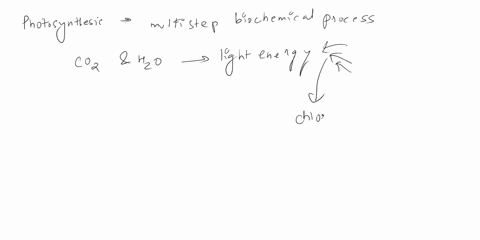 Photosynthesis → multistep biochemical process
CO2 & H2O → light energy
chlor